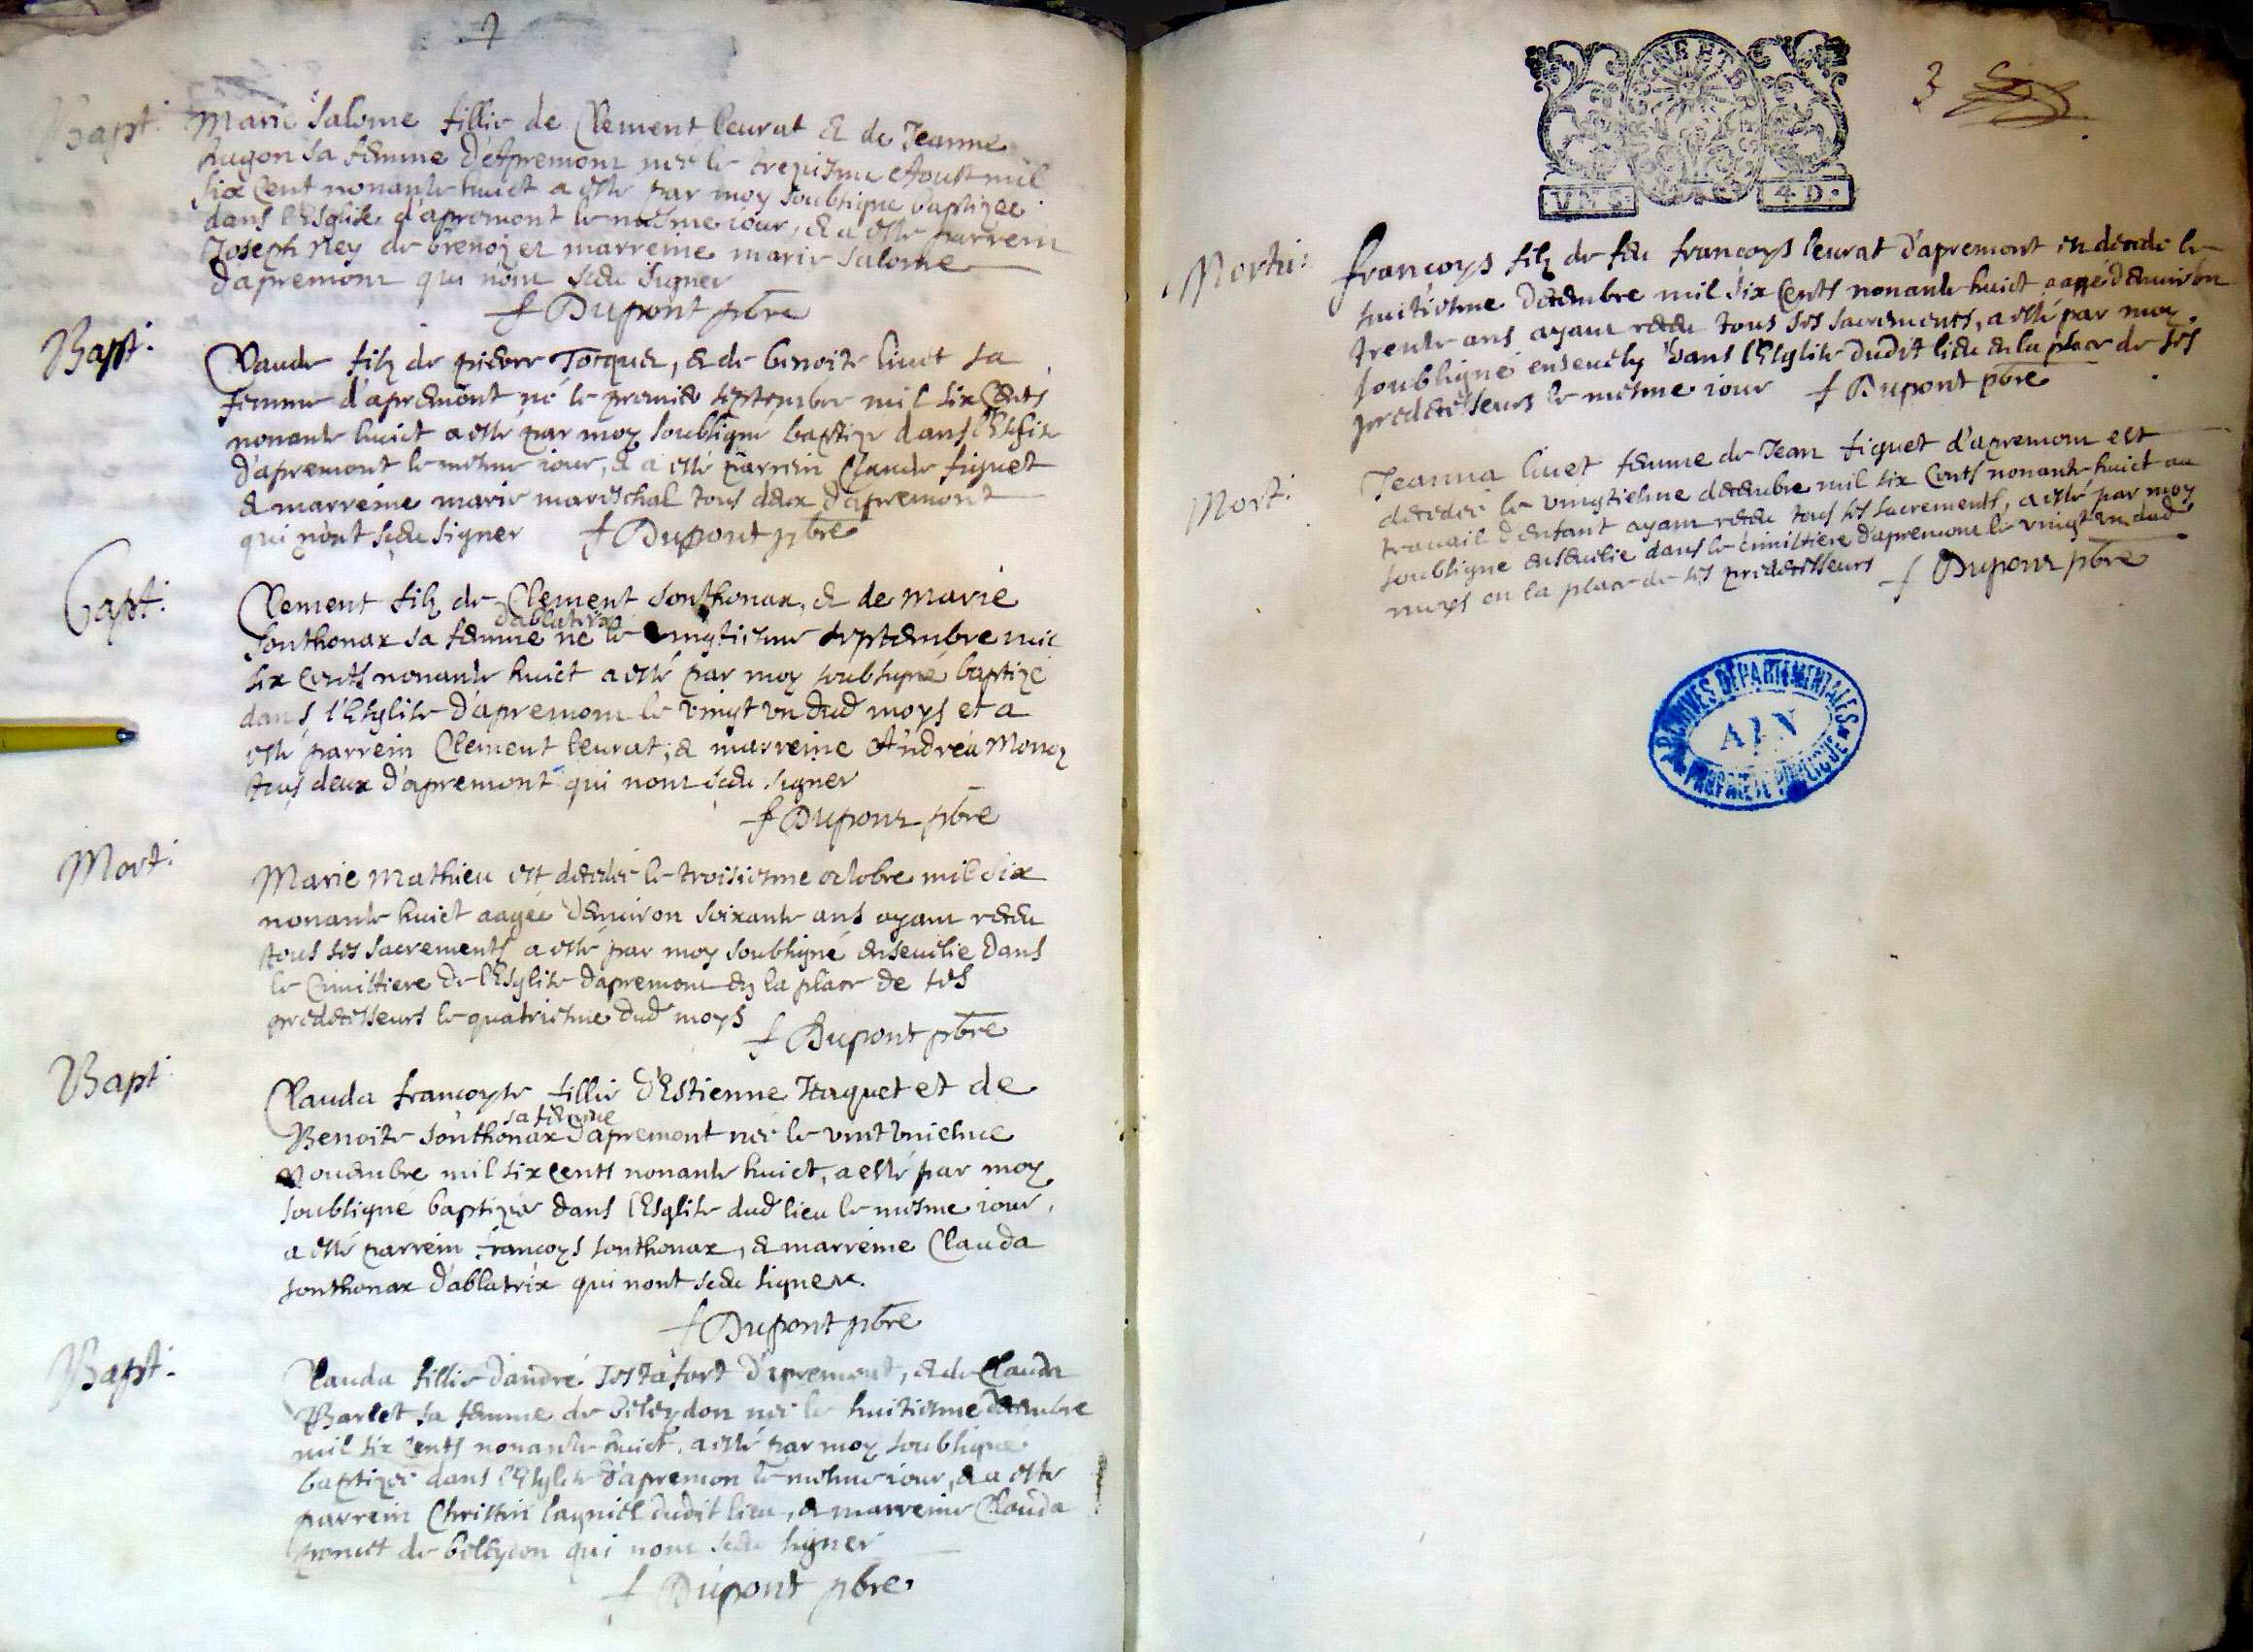 Bapt:
Marie Salome fillie de Clement leurat & de Jeanne
hugon sa femme d'Apremont née le treziesme Aoust mil
six cent nonante huict a esté par moy soubsigne baptizee
dans l'Esglise d'apremont le mesme iour, & a esté parrein
Joseph Ney de brenoz et marreine marie salome
d'apremont qui nont sceu signer
f Dupont pbre
Bapt:
Claude filz de pierre Tocquet, & de benoite livet sa
femme d'apremont né le premier septembre mil six Cents
nonante huict a esté par moy soubsigné baptize dans l'Esglise
d'apremont le mesme iour, & a esté parrein Claude figuet
& marreine marie mareschal tous deux d'apremont
qui nont sceu signer f Dupont pbre
Bapt:
Clement filz de Clement sonthonax, & de marie
dablatrix
sonthonax sa femme né le vingtiesme septembre mil
six Cents nonante huict a esté par moy soubsigné baptizé
dans l'Esglise d'apremont le vingt un dud moys et a
esté parrein Clement leurat, & marreine Andréa Monoz
tous deux d'apremont qui nont sceu signer
f Dupont pbre
Mort:
Marie Mathieu est decedée le troisiesme octobre mil six
nonante huict aagée d'environ soixante ans ayant receu
tous ses sacrements a esté par moy soubsigné ensevelie dans
le Cimistiere de l'Esglise d'apremont en la place de ses
predecesseurs le quatriesme dud moys
f Dupont pbre
Bapt
Clauda francoyse fillie d'Estienne Jaquet et de
sa femme
Benoite sonthonax d'apremont née le vint uniesme
Novembre mil six cents nonante huict, a esté par moy
soubsigné baptizée dans l'Esglise dud lieu le mesme iour,
a esté parrein francoys sonthonax, & marreine Clauda
sonthonax d'ablatrix qui nont sceu signer.
f Dupont pbre
Bapt:
Clauda fillie d'andré Jostafort d'apremont, & de Clauda
Barlet sa femme de beleydon née le huitiesme decembre
mil six Cents nonante huict, a esté par moy soubsigné
baptizée dans l'Esglise d'apremon le mesme iour, & a esté
parrein Christin lagniel dudit lieu, & marreine Clauda
poncet de belleydon qui nont sceu signer
f Dupont pbre
3
GENE
VN S.
4 D.
Mortu:
francoys filz de feu francoys leurat d'apremont en decede le
huitiesme decembre mil six Cents nonante huict aagé d'environ
trente ans ayant receu tous ses sacrements, a esté par moy
soubsigné ensevely dans l'Esglise dudit lieu en la place de ses
predecesseurs le mesme iour f Dupont pbre
Mort:
Jeanna livet femme de Jean figuet d'apremont est
decedée le vingtiesme decembre mil six Cents nonante huict au
travail d'enfant ayant receu tous ses sacrements, a esté par moy
soubsigné ensevelie dans le cimistiere d'apremont le vingt un dud
moys en la place de ses predecesseurs f Dupont pbre
ARCHIVES DEPARTEMENTALES
AIN
PROPRIETE PUBLIQUE